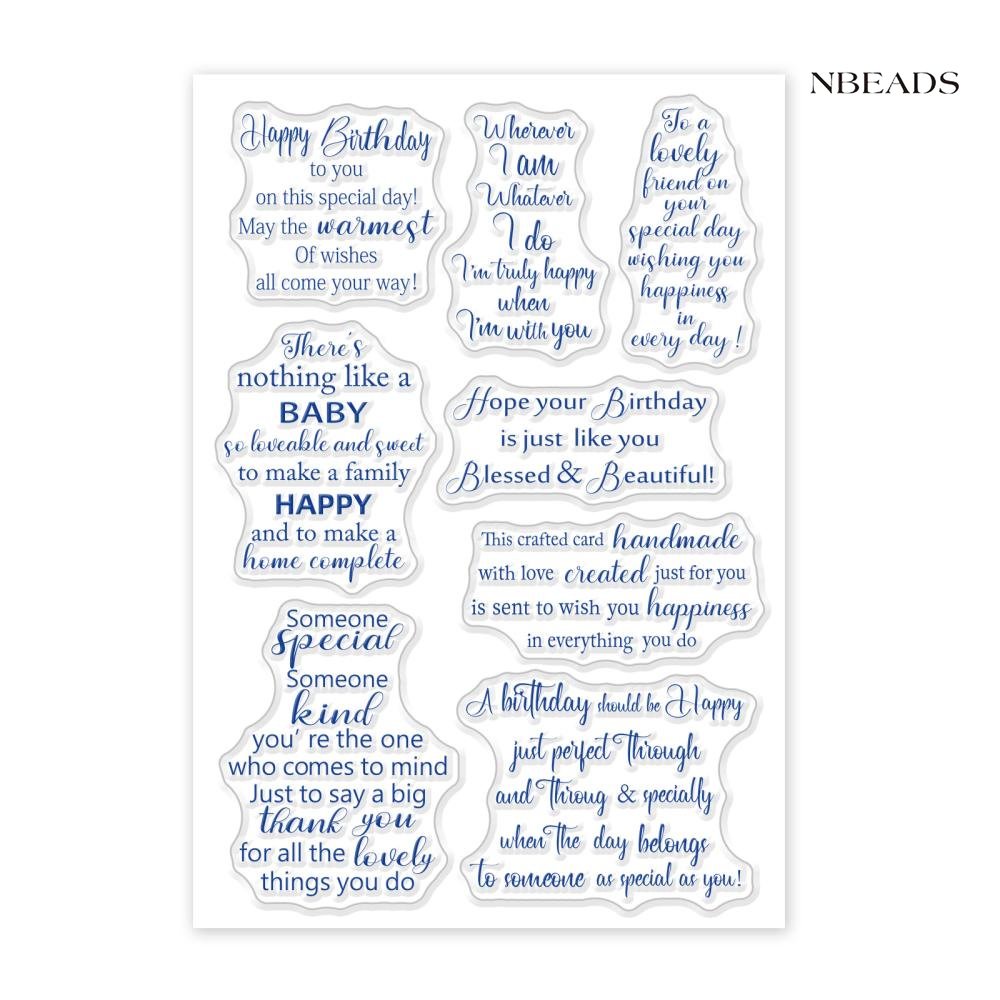 NBEADS
Happy Birthday
to you
on this special day!
May the warmest
Of wishes
all come your way!
Wherever
I am
Whatever
I do
I'm truly happy
when
I'm with you
To a
lovely
friend on
your
special day
wishing you
happiness
in
every day !
There's
nothing like a
BABY
so loveable and sweet
to make a family
HAPPY
and to make a
home complete
Hope your Birthday
is just like you
Blessed & Beautiful!
This crafted card handmade
with love created just for you
is sent to wish you happiness
in everything you do
Someone
special
Someone
kind
you' re the one
who comes to mind
Just to say a big
thank you
for all the lovely
things you do
A birthday should be Happy
just perfect Through
and Throug & specially
when The day belongs
to someone as special as you!